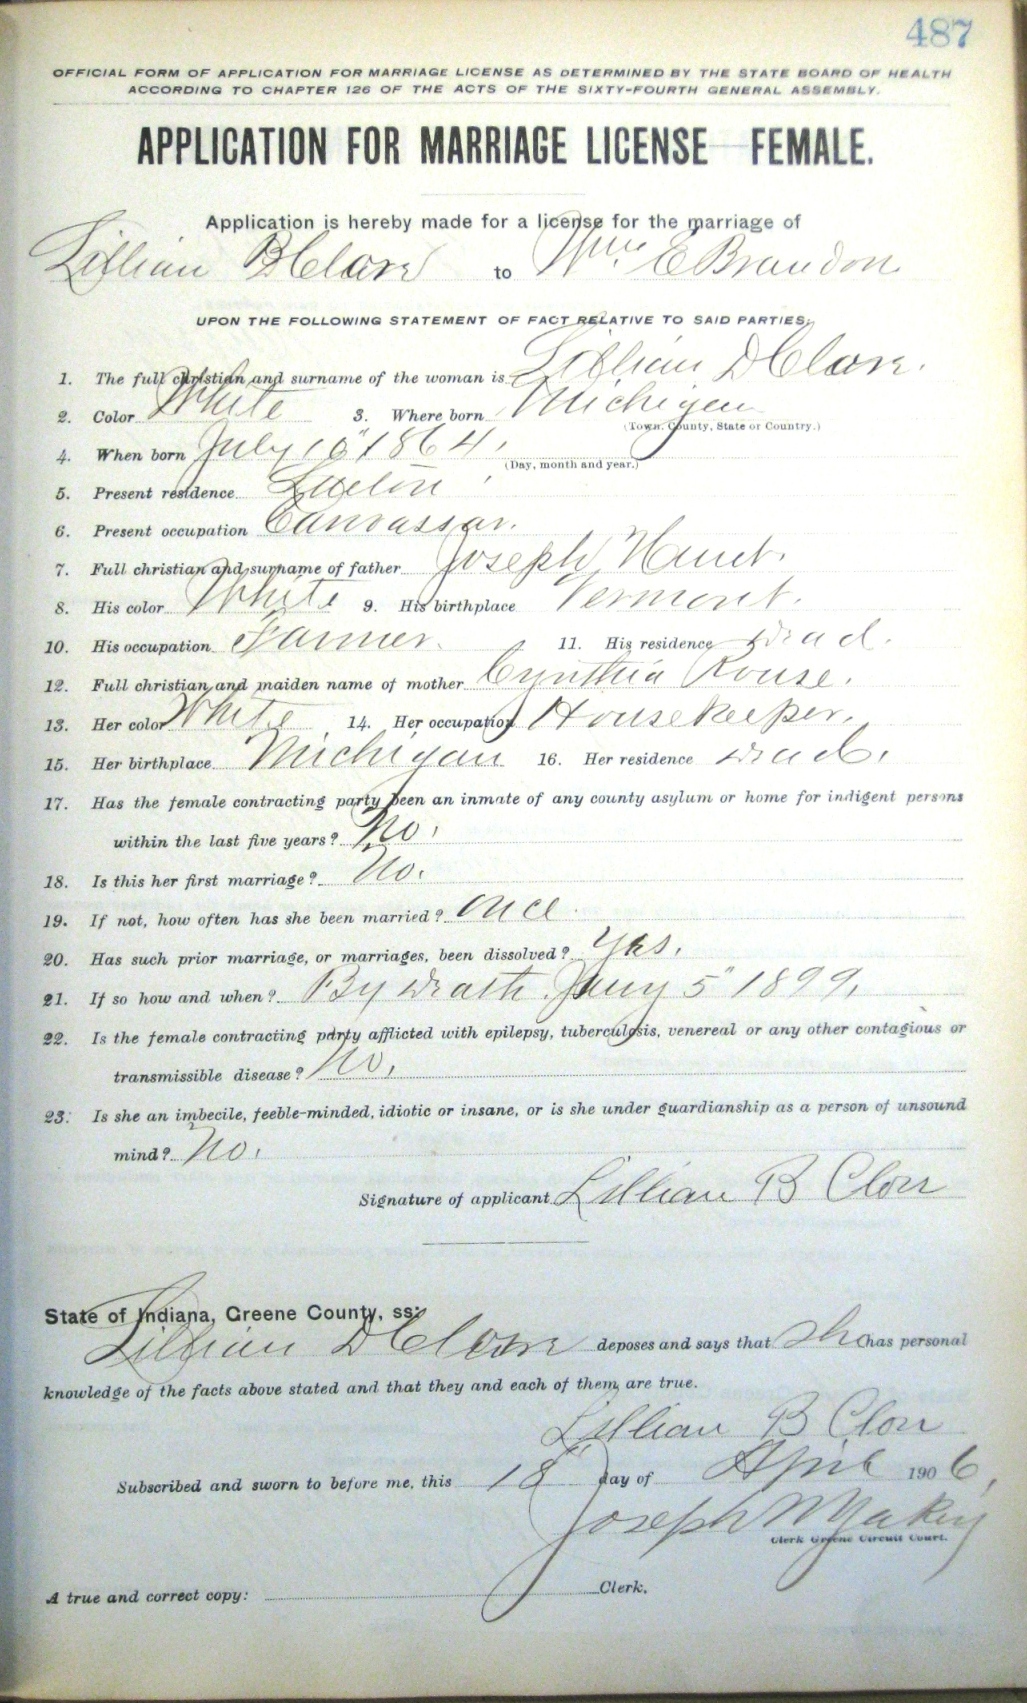 487
OFFICIAL FORM OF APPLICATION FOR MARRIAGE LICENSE AS DETERMINED BY THE STATE BOARD OF HEALTH
ACCORDING TO CHAPTER 126 OF THE ACTS OF THE SIXTY-FOURTH GENERAL ASSEMBLY.
APPLICATION FOR MARRIAGE LICENSE FEMALE.
Application is hereby made for a license for the marriage of
Lillian B Clore to Wm E Brandon
UPON THE FOLLOWING STATEMENT OF FACT RELATIVE TO SAID PARTIES:
1. The full christian and surname of the woman is Lillian D Clore.
2. Color White 3. Where born Michigan
(Town, County, State or Country.)
4. When born July 10" 1864.
(Day, month and year.)
5. Present residence
6. Present occupation Canvassar.
7. Full christian and surname of father Joseph
8. His color White 9. His birthplace Vermont.
10. His occupation Farmer. 11. His residence Dead.
12. Full christian and maiden name of mother Cynthia Rouse.
13. Her color White 14. Her occupation Housekeeper.
15. Her birthplace Michigan 16. Her residence Dead.
17. Has the female contracting party been an inmate of any county asylum or home for indigent persons
within the last five years? No.
18. Is this her first marriage? No.
19. If not, how often has she been married? Once
20. Has such prior marriage, or marriages, been dissolved? Yes.
21. If so how and when? By Death. Jany 5" 1899.
22. Is the female contracting party afflicted with epilepsy, tuberculosis, venereal or any other contagious or
transmissible disease? No.
23. Is she an imbecile, feeble-minded, idiotic or insane, or is she under guardianship as a person of unsound
mind? No.
Signature of applicant Lillian B Clorr
State of Indiana, Greene County, ss:
Lillian D Clore deposes and says that She has personal
knowledge of the facts above stated and that they and each of them are true.
Lillian B Clorr
Subscribed and sworn to before me, this 18" day of April 1906.
Joseph W Yakey
Clerk Greene Circuit Court.
A true and correct copy: Clerk.